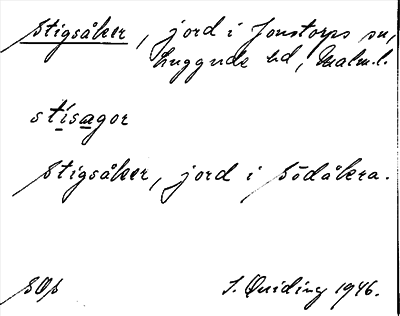 Stigsåker, jord i Jonstorps sn,
Luggude hd, Malm. l.
stísagor
Stigsåker, jord i Södåkra.
SOp
S. Quiding 1946.